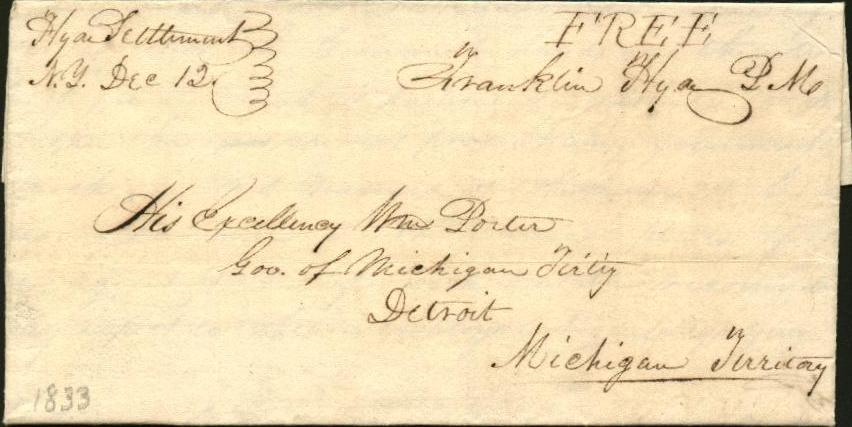 Hyde Settlement
N.Y. Dec 12
FREE
Franklin Hyde P M
His Excellency Wm Porter
Gov. of Michigan Tert'y
Detroit
Michigan Territory
1833